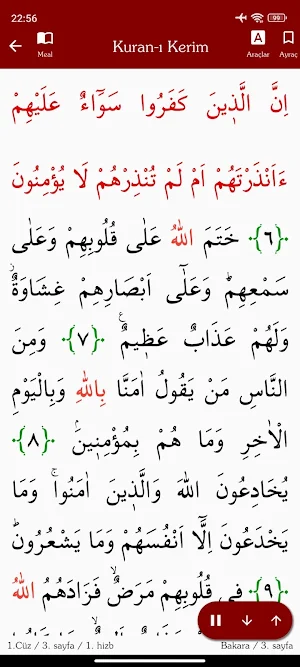 22:56
99
Meal
Kuran-ı Kerim
Araçlar
Ayraç
اِنَّ الَّذ۪ينَ كَفَرُوا سَوَٓاءٌ عَلَيْهِمْ
ءَاَنْذَرْتَهُمْ اَمْ لَمْ تُنْذِرْهُمْ لَا يُؤْمِنُونَ
﴿٦﴾ خَتَمَ اللّٰهُ عَلٰى قُلُوبِهِمْ وَعَلٰى
سَمْعِهِمْۜ وَعَلٰٓى اَبْصَارِهِمْ غِشَاوَةٌۘ
وَلَهُمْ عَذَابٌ عَظ۪يمٌ۟ ﴿٧﴾ وَمِنَ
النَّاسِ مَنْ يَقُولُ اٰمَنَّا بِاللّٰهِ وَبِالْيَوْمِ
الْاٰخِرِ وَمَا هُمْ بِمُؤْمِن۪ينَۢ ﴿٨﴾
يُخَادِعُونَ اللّٰهَ وَالَّذ۪ينَ اٰمَنُواۚ وَمَا
يَخْدَعُونَ اِلَّٓا اَنْفُسَهُمْ وَمَا يَشْعُرُونَۜ
﴿٩﴾ ف۪ي قُلُوبِهِمْ مَرَضٌۙ فَزَادَهُمُ اللّٰهُ
1.Cüz / 3. sayfa / 1. hizb
Bakara / 3. sayfa